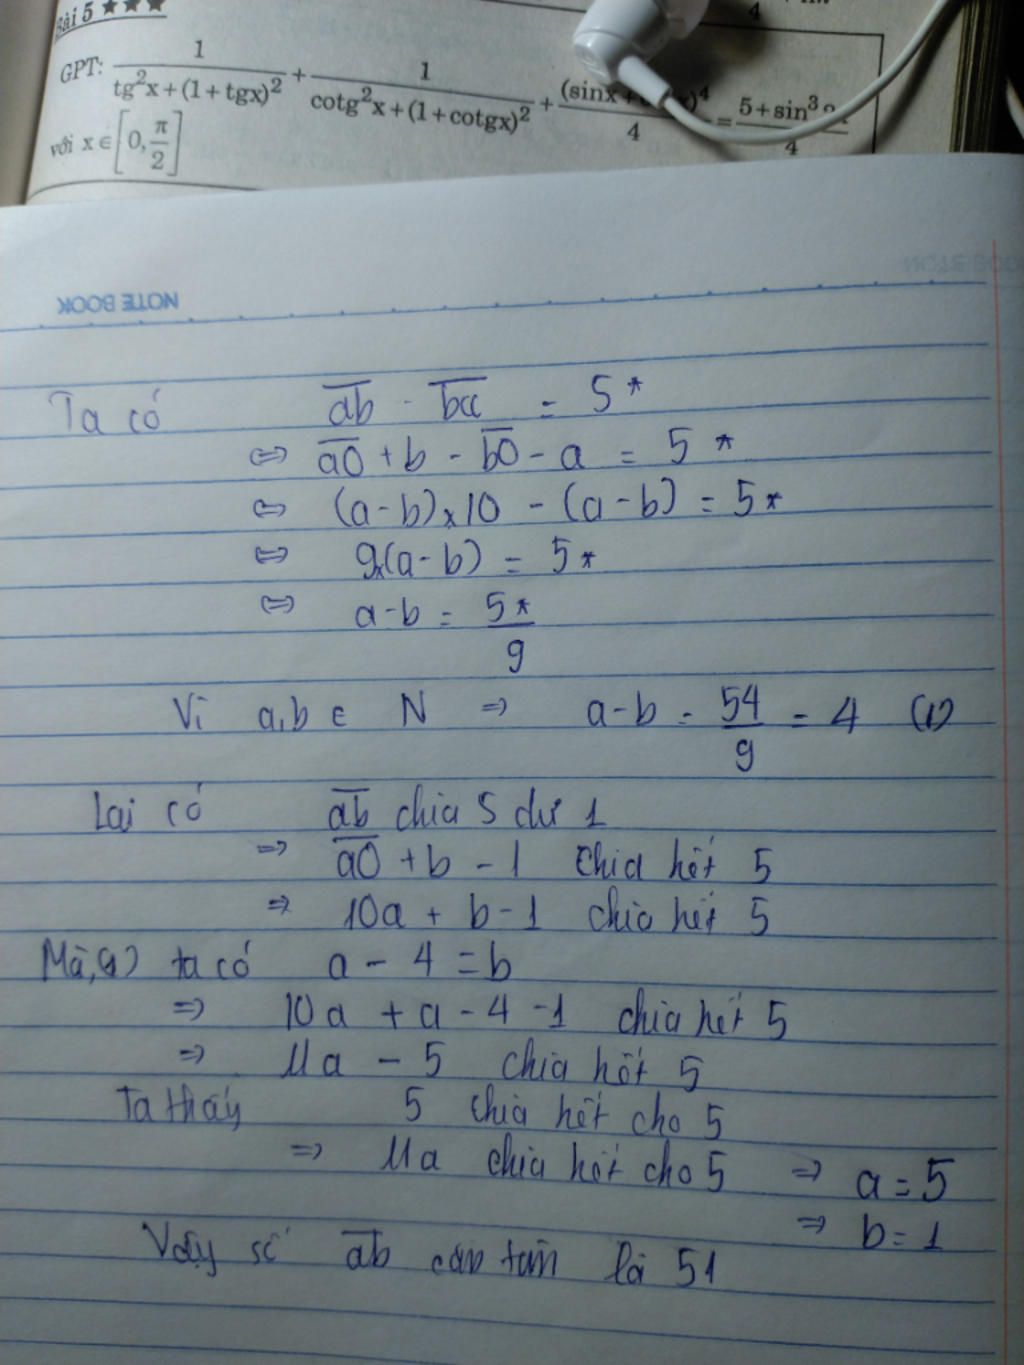 Bài 5 ★★★
GPT: 1/(tg²x+(1+tgx)²) + 1/(cotg²x+(1+cotgx)²) + (sinx+ x)⁴/4 = 5+sin³ /4
với x ∈ [0, π/2]
NOTE BOOK
NOTE BOOK
Ta có ab - ba = 5*
⇔ a0 + b - b0 - a = 5*
⇔ (a-b)x10 - (a-b) = 5*
⇔ 9x(a-b) = 5*
⇔ a-b = 5*/9
Vì a,b ∈ N ⇒ a-b = 54/9 = 4 (1)
Lại có ab chia 5 dư 1
⇒ a0 + b - 1 chia hết 5
⇒ 10a + b-1 chia hết 5
Mà, (1) ta có a - 4 = b
⇒ 10a + a - 4 - 1 chia hết 5
⇒ 11a - 5 chia hết 5
Ta thấy 5 chia hết cho 5
⇒ 11a chia hết cho 5 ⇒ a = 5
⇒ b = 1
Vậy số ab cần tìm là 51